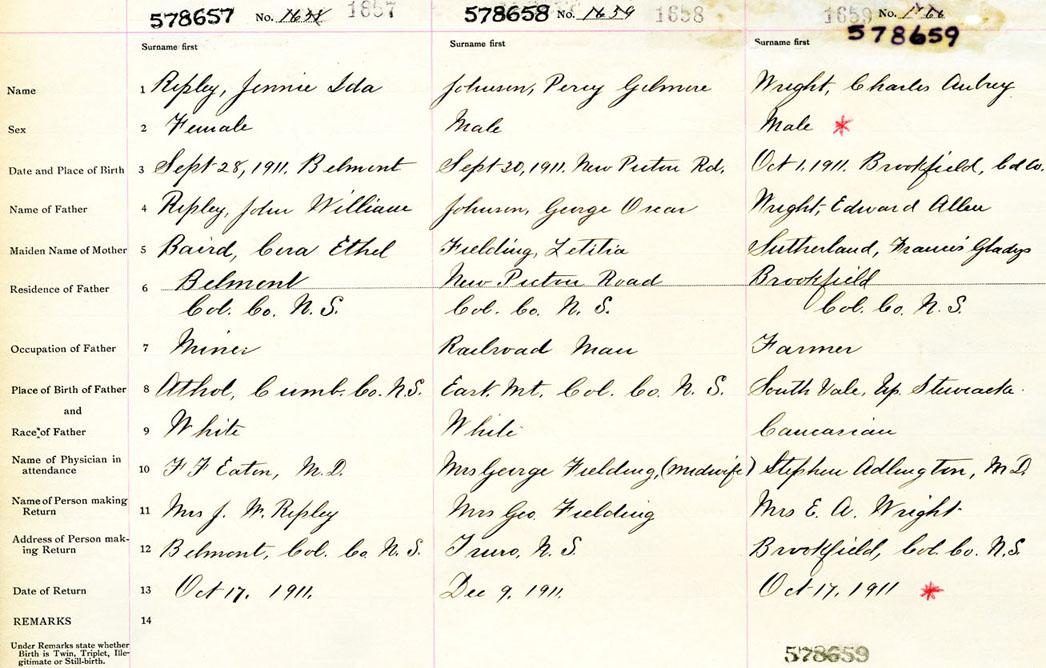 578657 No. 1657
578658 No. 1658
1659 No.
578659
Surname first Surname first Surname first
Name 1 Ripley, Jennie Ida Johnson, Percy Gilmore Wright, Charles Aubrey
Sex 2 Female Male Male *
Date and Place of Birth 3 Sept 28, 1911. Belmont Sept 20, 1911. New Picton Rd. Oct 1, 1911. Brookfield, Col Co.
Name of Father 4 Ripley, John William Johnson, George Oscar Wright, Edward Allen
Maiden Name of Mother 5 Baird, Cora Ethel Fielding, Letitia Sutherland, Francis Gladys
Residence of Father 6 Belmont New Picton Road Brookfield
Col. Co. N.S. Col. Co. N.S. Col. Co. N.S.
Occupation of Father 7 Miner Railroad Man Farmer
Place of Birth of Father 8 Athol, Cumb. Co. N.S. East Mt. Col. Co. N.S. South Vale, Up. Stewiacke.
and
Race of Father 9 White White Caucasian
Name of Physician in
attendance 10 F F Eaton, M.D. Mrs George Fielding, (midwife) Stephen Adlington, M.D.
Name of Person making
Return 11 Mrs J. W. Ripley Mrs Geo. Fielding Mrs E. A. Wright
Address of Person mak-
ing Return 12 Belmont, Col. Co. N.S. Truro, N.S. Brookfield, Col. Co. N.S.
Date of Return 13 Oct 17, 1911. Dec 9, 1911. Oct 17, 1911 *
REMARKS 14
Under Remarks state whether
Birth is Twin, Triplet, Ille-
gitimate or Still-birth.
578659